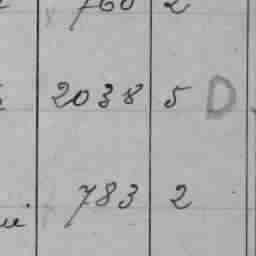 760 2
2038 5 D
783 2